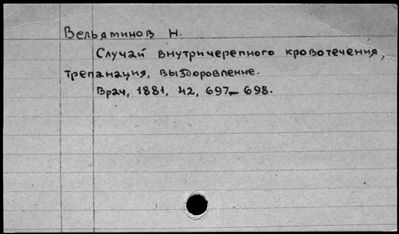 Вельяминов Н.
Случай внутричерепного кровотечения,
трепанация, выздоровление.
Врач, 1881, 42, 697–698.